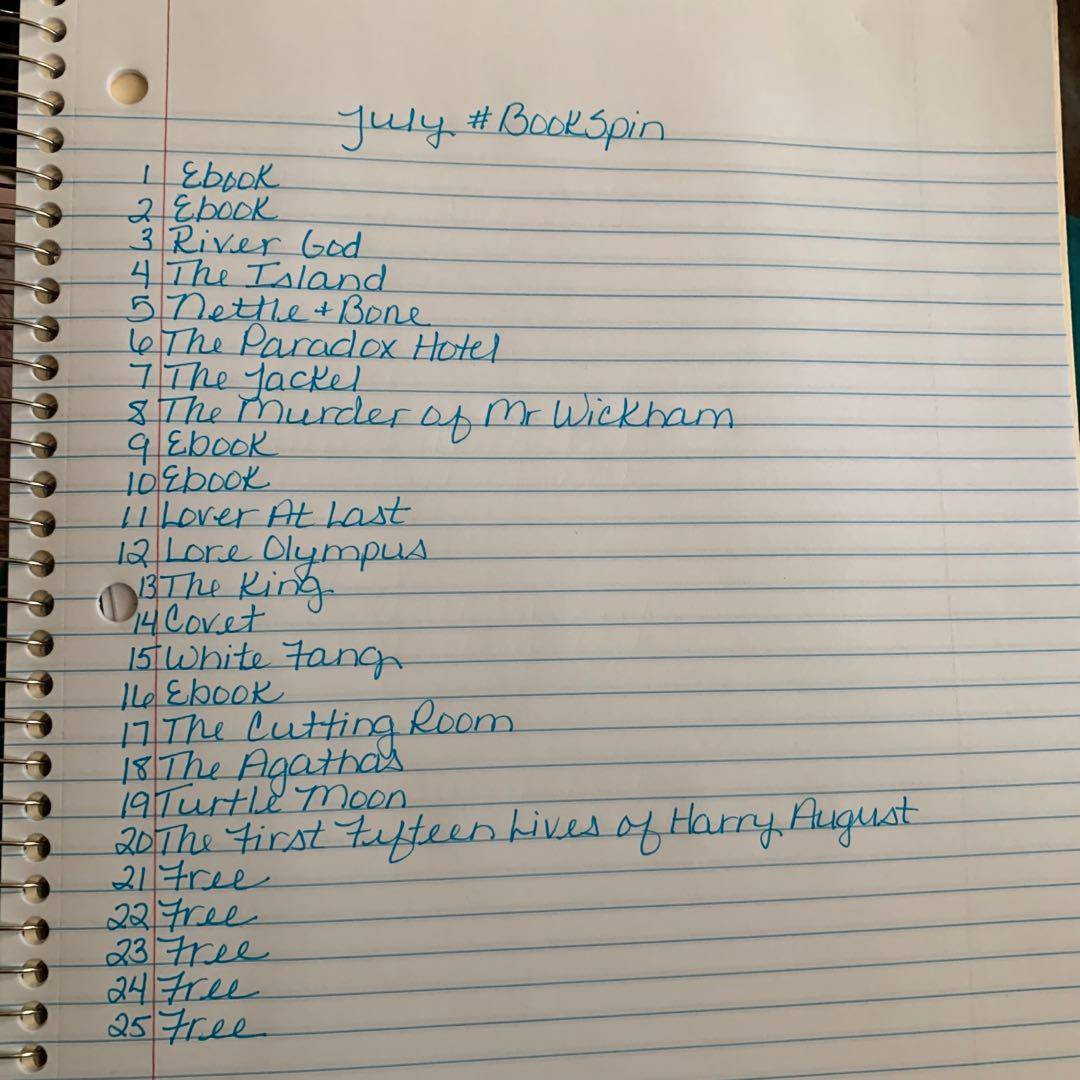 July #BookSpin
1 Ebook
2 Ebook
3 River God
4 The Island
5 Nettle + Bone
6 The Paradox Hotel
7 The Jackel
8 The Murder of Mr Wickham
9 Ebook
10 Ebook
11 Lover At Last
12 Lore Olympus
13 The King
14 Covet
15 White Fang
16 Ebook
17 The Cutting Room
18 The Agathas
19 Turtle Moon
20 The First Fifteen Lives of Harry August
21 Free
22 Free
23 Free
24 Free
25 Free